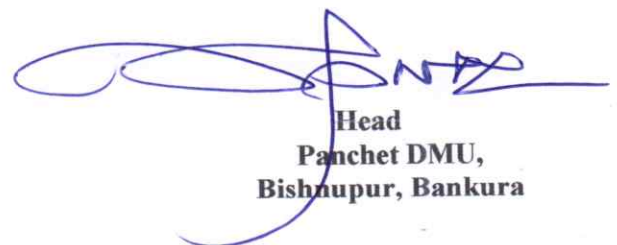 Head
Panchet DMU,
Bishnupur, Bankura